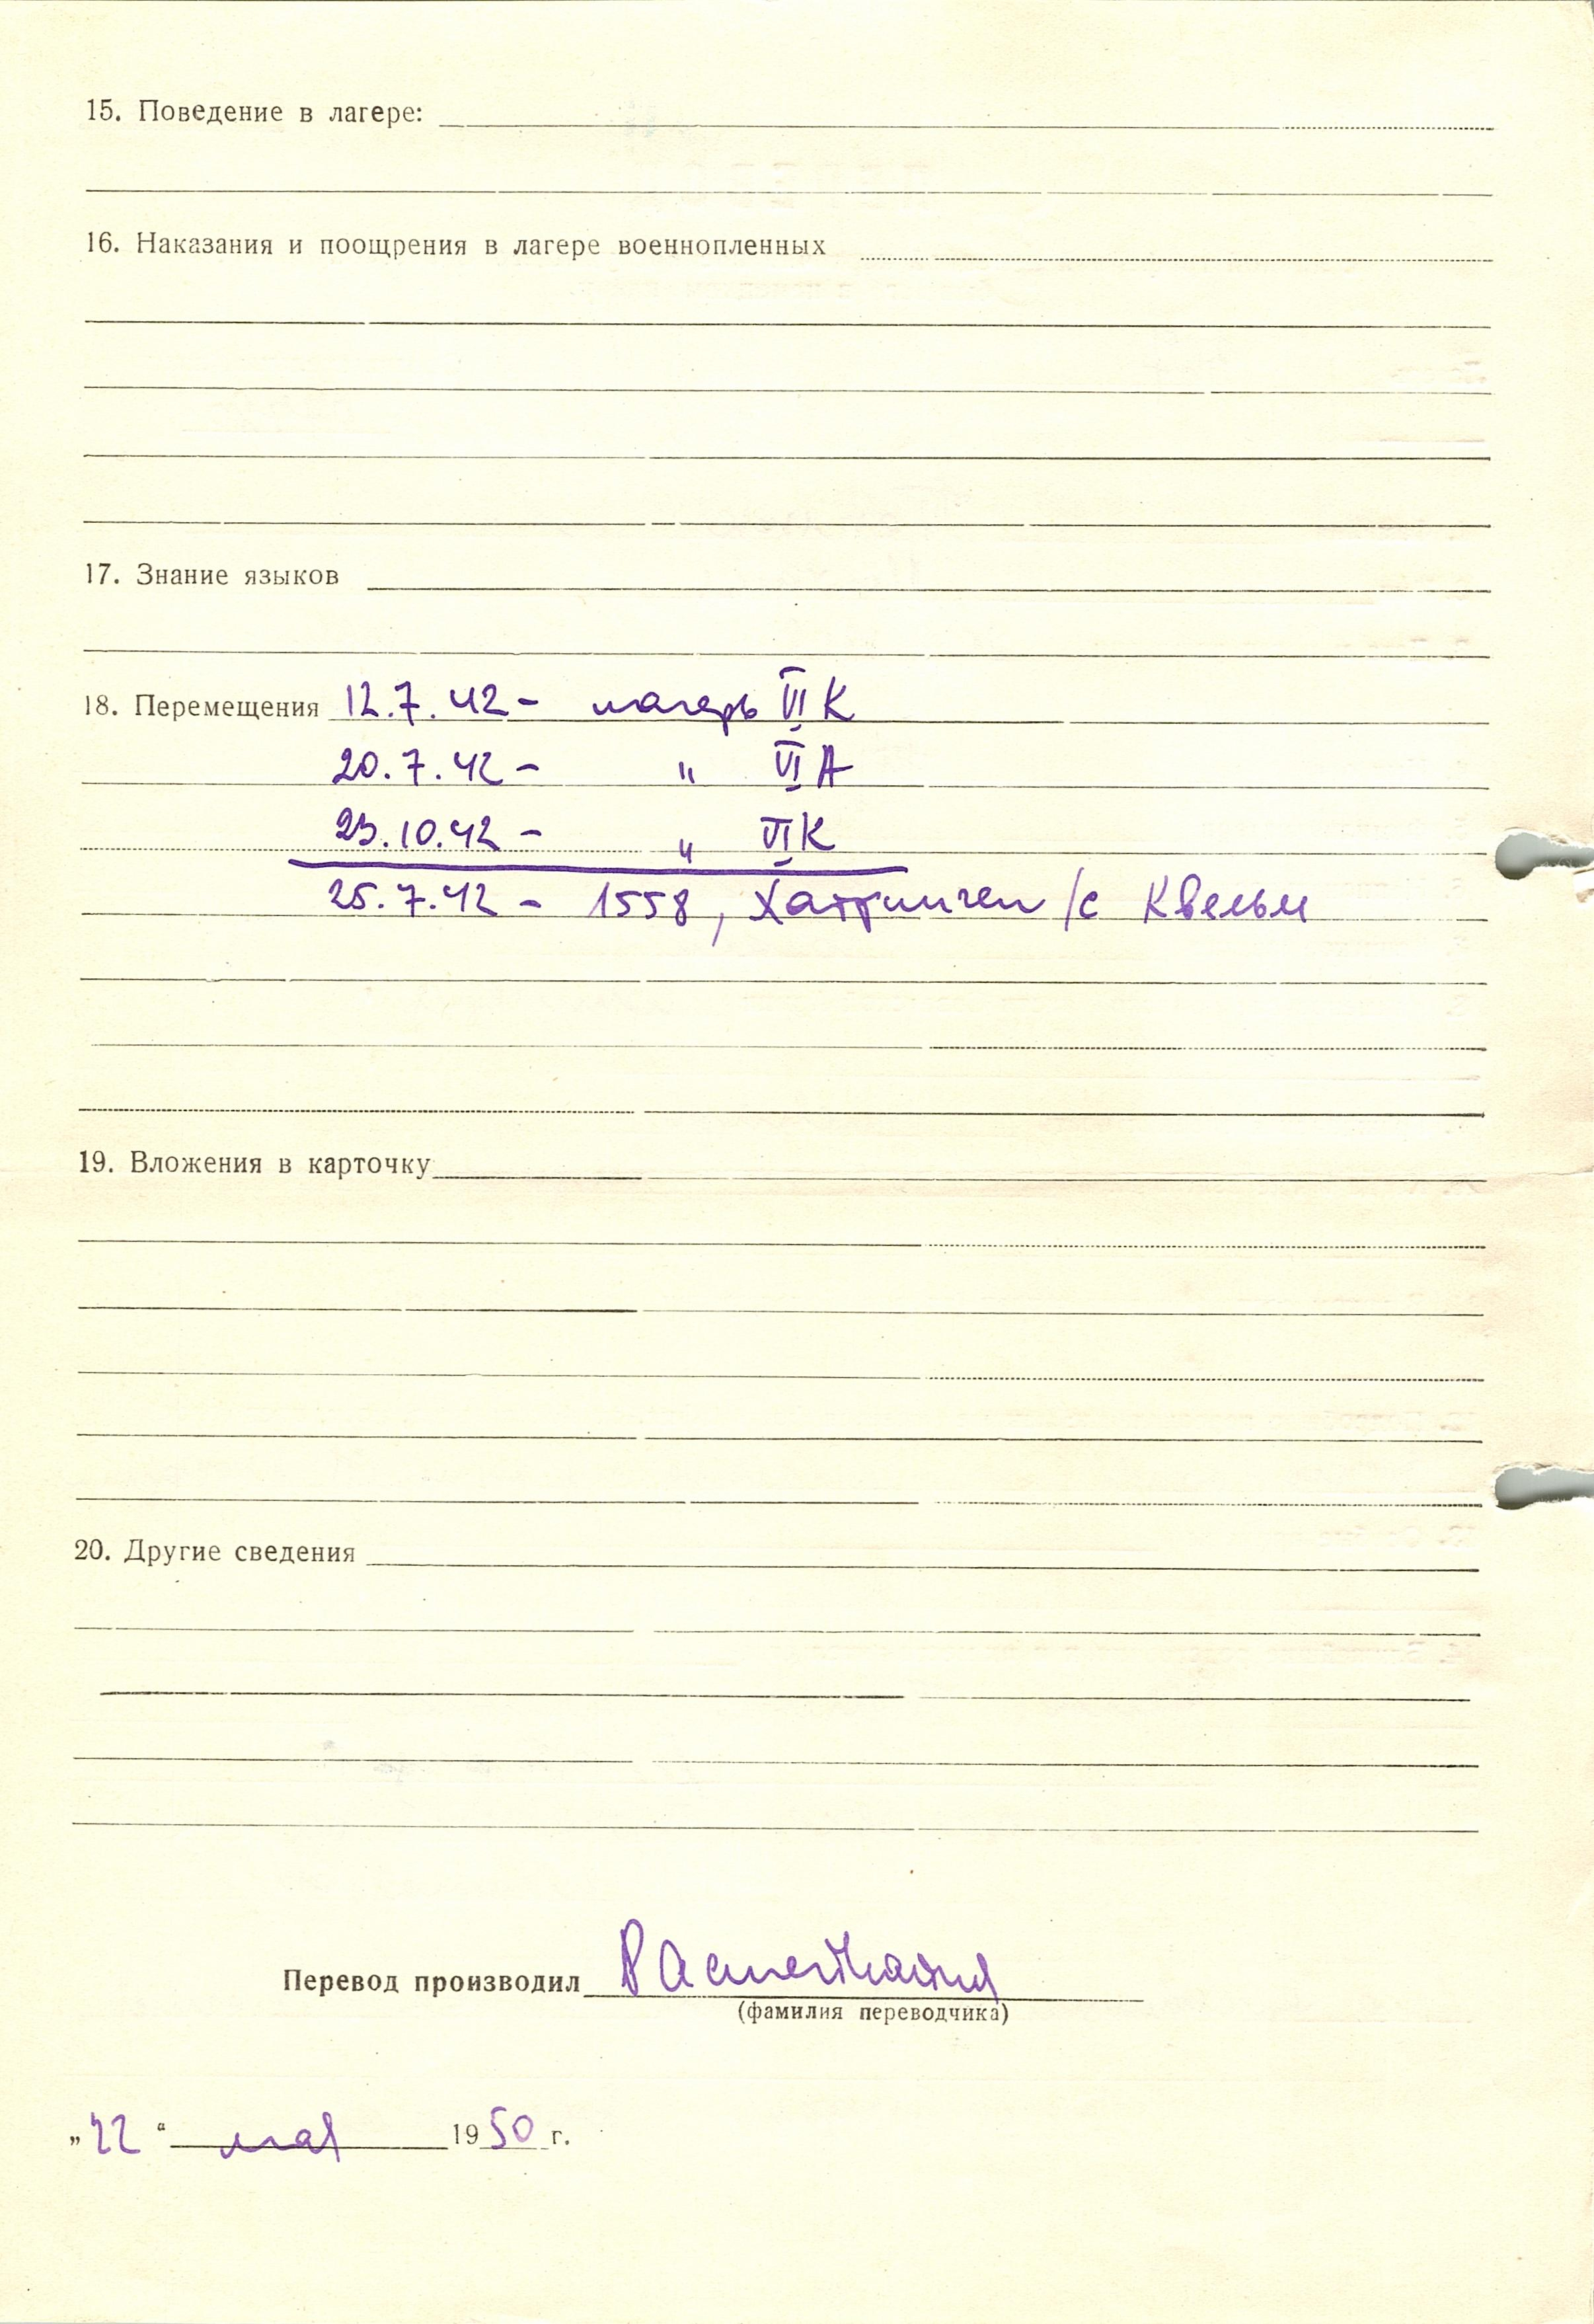 15. Поведение в лагере:
16. Наказания и поощрения в лагере военнопленных
17. Знание языков
18. Перемещения 12.7.42 – лагерь VI К
20.7.42 – " VI А
23.10.42 – " VI К
25.7.42 – 1558, Хаттинген /с Квельм
19. Вложения в карточку
20. Другие сведения
Перевод производил
(фамилия переводчика)
„22“ мая 1950 г.